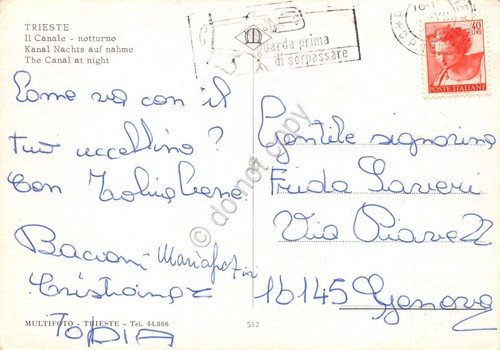 TRIESTE
Il Canale - notturno
Kanal Nachts auf nahme
The Canal at night
guarda prima
di sorpassare
40
POSTE ITALIANE
Come va con il
tuo uccellino?
Con
Bacioni Mariagrazia
Cristiana
TOPIA
Gentile signorina
Frida Saveri
Via Piave 2
16145 Genova
MULTIFOTO - TRIESTE - Tel. 44.886
517
© domot copy